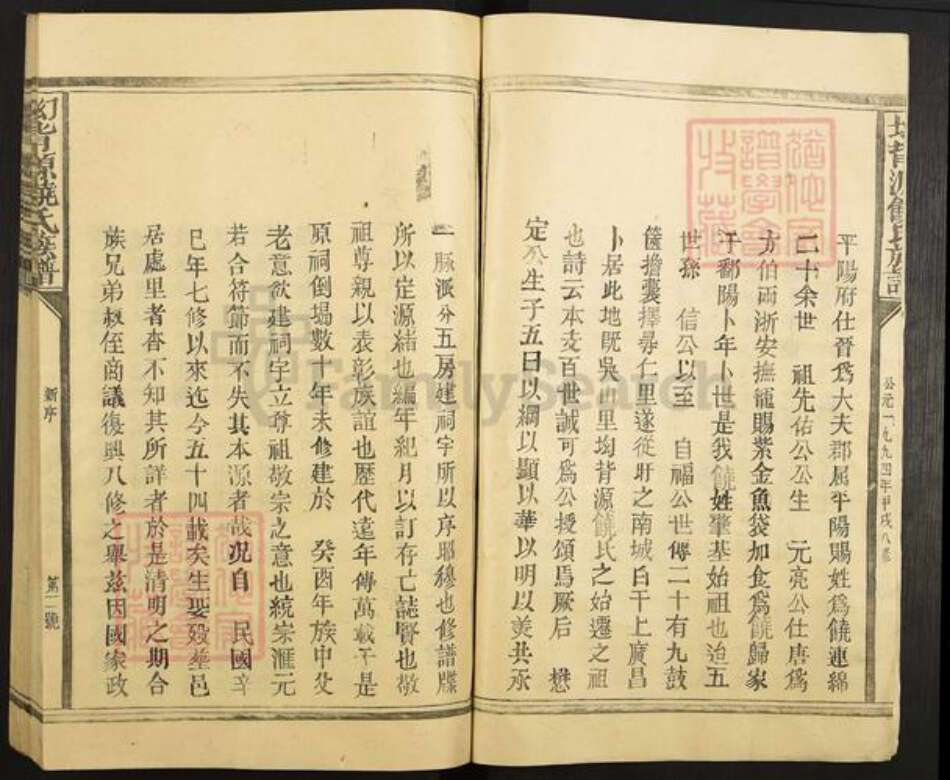 平陽府仕晉爲大夫郡屈平陽賜姓爲饒連綿
二十余世　祖先佑公公生　元亮公仕唐爲
方伯兩浙安撫寵賜紫金魚袋加食爲饒歸家
于鄱陽卜年卜世是我饒姓肇基始祖也迨五
世孫　信公以至　自福公世傳二十有九鼓
篋擔囊擇尋仁里遂從盱之南城白干上廣昌
卜居此地既吳山里㘭背源饒氏之始遷之祖
也詩云本支百世誠可爲公授頌焉厥后　懋
定公生子五曰以綱以顯以華以明以美共承
公元一九九四年甲戌八修
一脈派分五房建祠宇所以序耶穆也修譜牒
所以定源緒也編年紀月以訂存亡誌賢也敬
祖尊親以表彰族誼也歷代遠年傳萬載于是
原祠倒塌數十年未修建於　癸酉年族中父
老意欲建祠宇立尊祖敬宗之意也統宗滙元
若合符節而不失其本源者哉况自　民國辛
巳年七修以來迄今五十四載矣生娶歿塟邑
居處里者杳不知其所詳者於是清明之期合
族兄弟叔侄商議復興八修之舉兹因國家政
㘭背源饒氏族譜
新序
第二號
FamilySearch